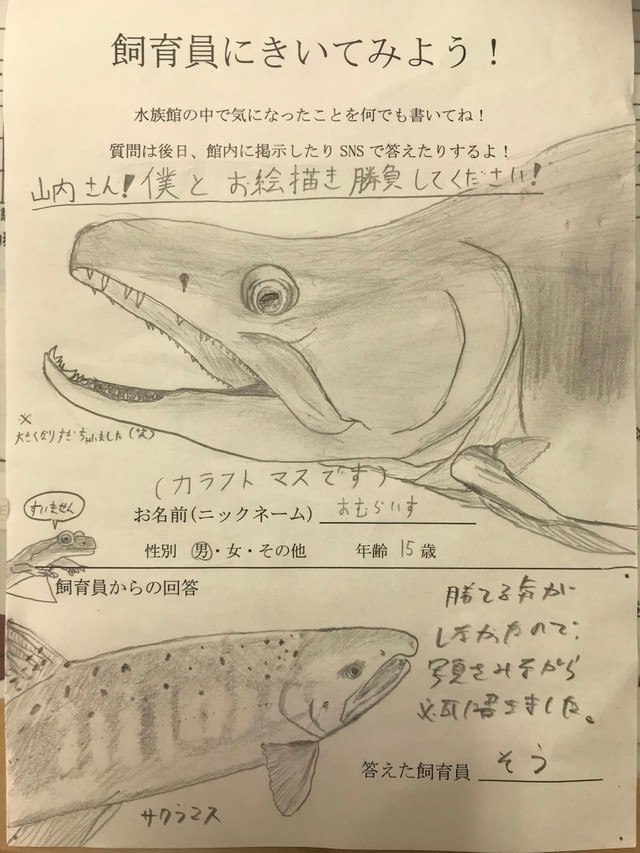 飼育員にきいてみよう！
水族館の中で気になったことを何でも書いてね！
質問は後日、館内に掲示したりSNSで答えたりするよ！
山内さん!僕とお絵描き勝負してください!
※
大きくなりすぎちゃいました(笑)
(カラフトマスです)
すいません
お名前(ニックネーム) おむらいす
性別 男・女・その他 年齢 15歳
飼育員からの回答
勝てる気が
しなかったので、
写真をみながら
必死に書きました。
答えた飼育員 そう
サクラマス